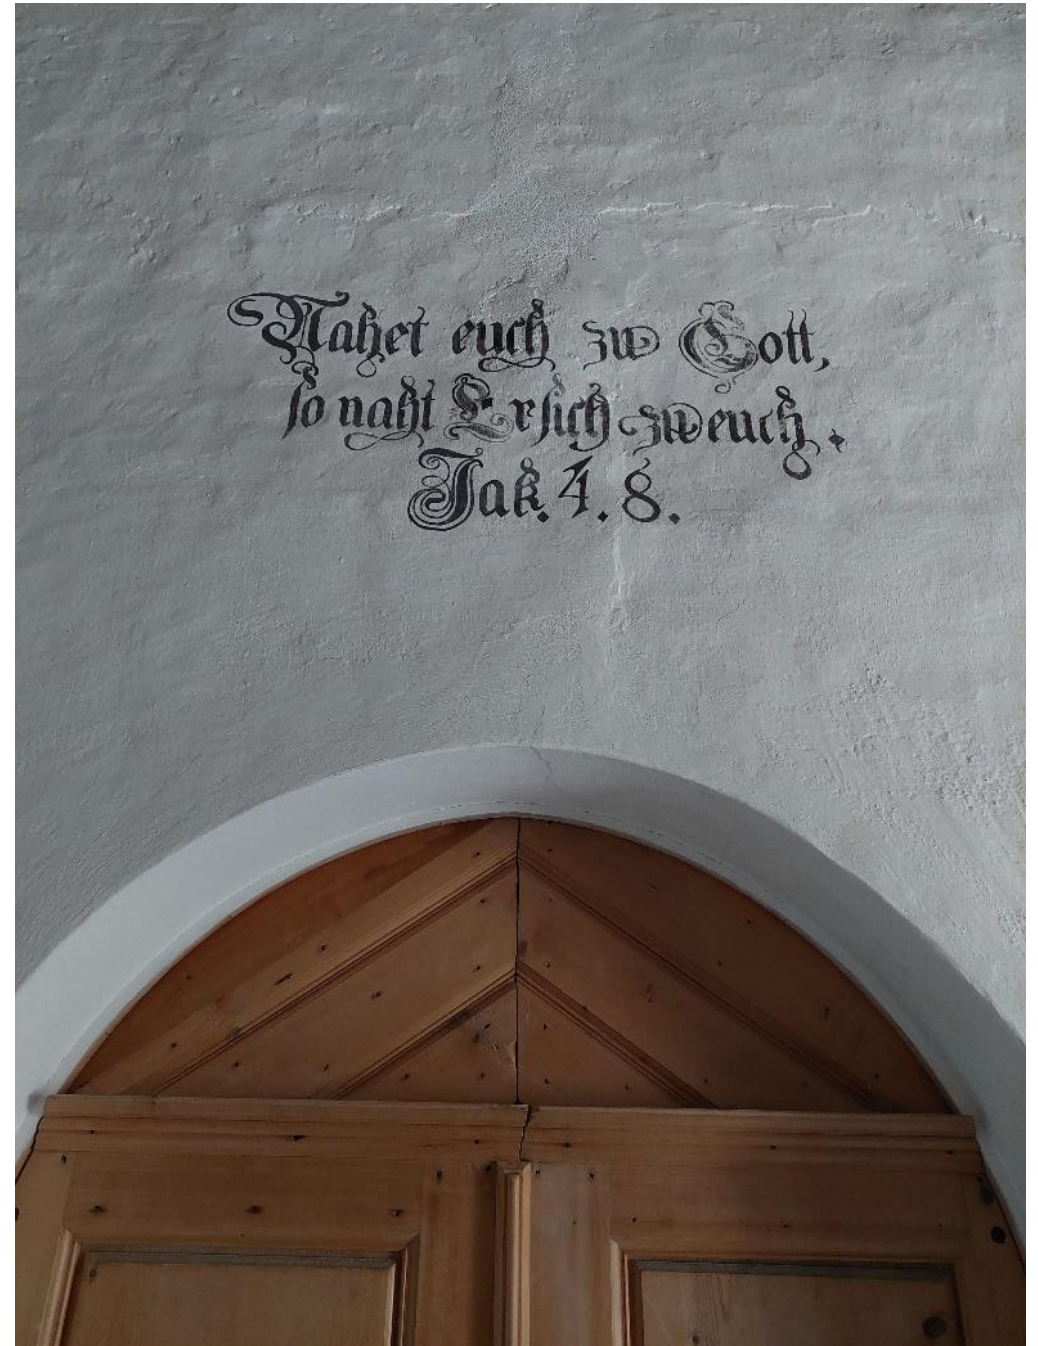 Nahet euch zu Gott,
so naht Er sich zu euch.
Jak. 4. 8.